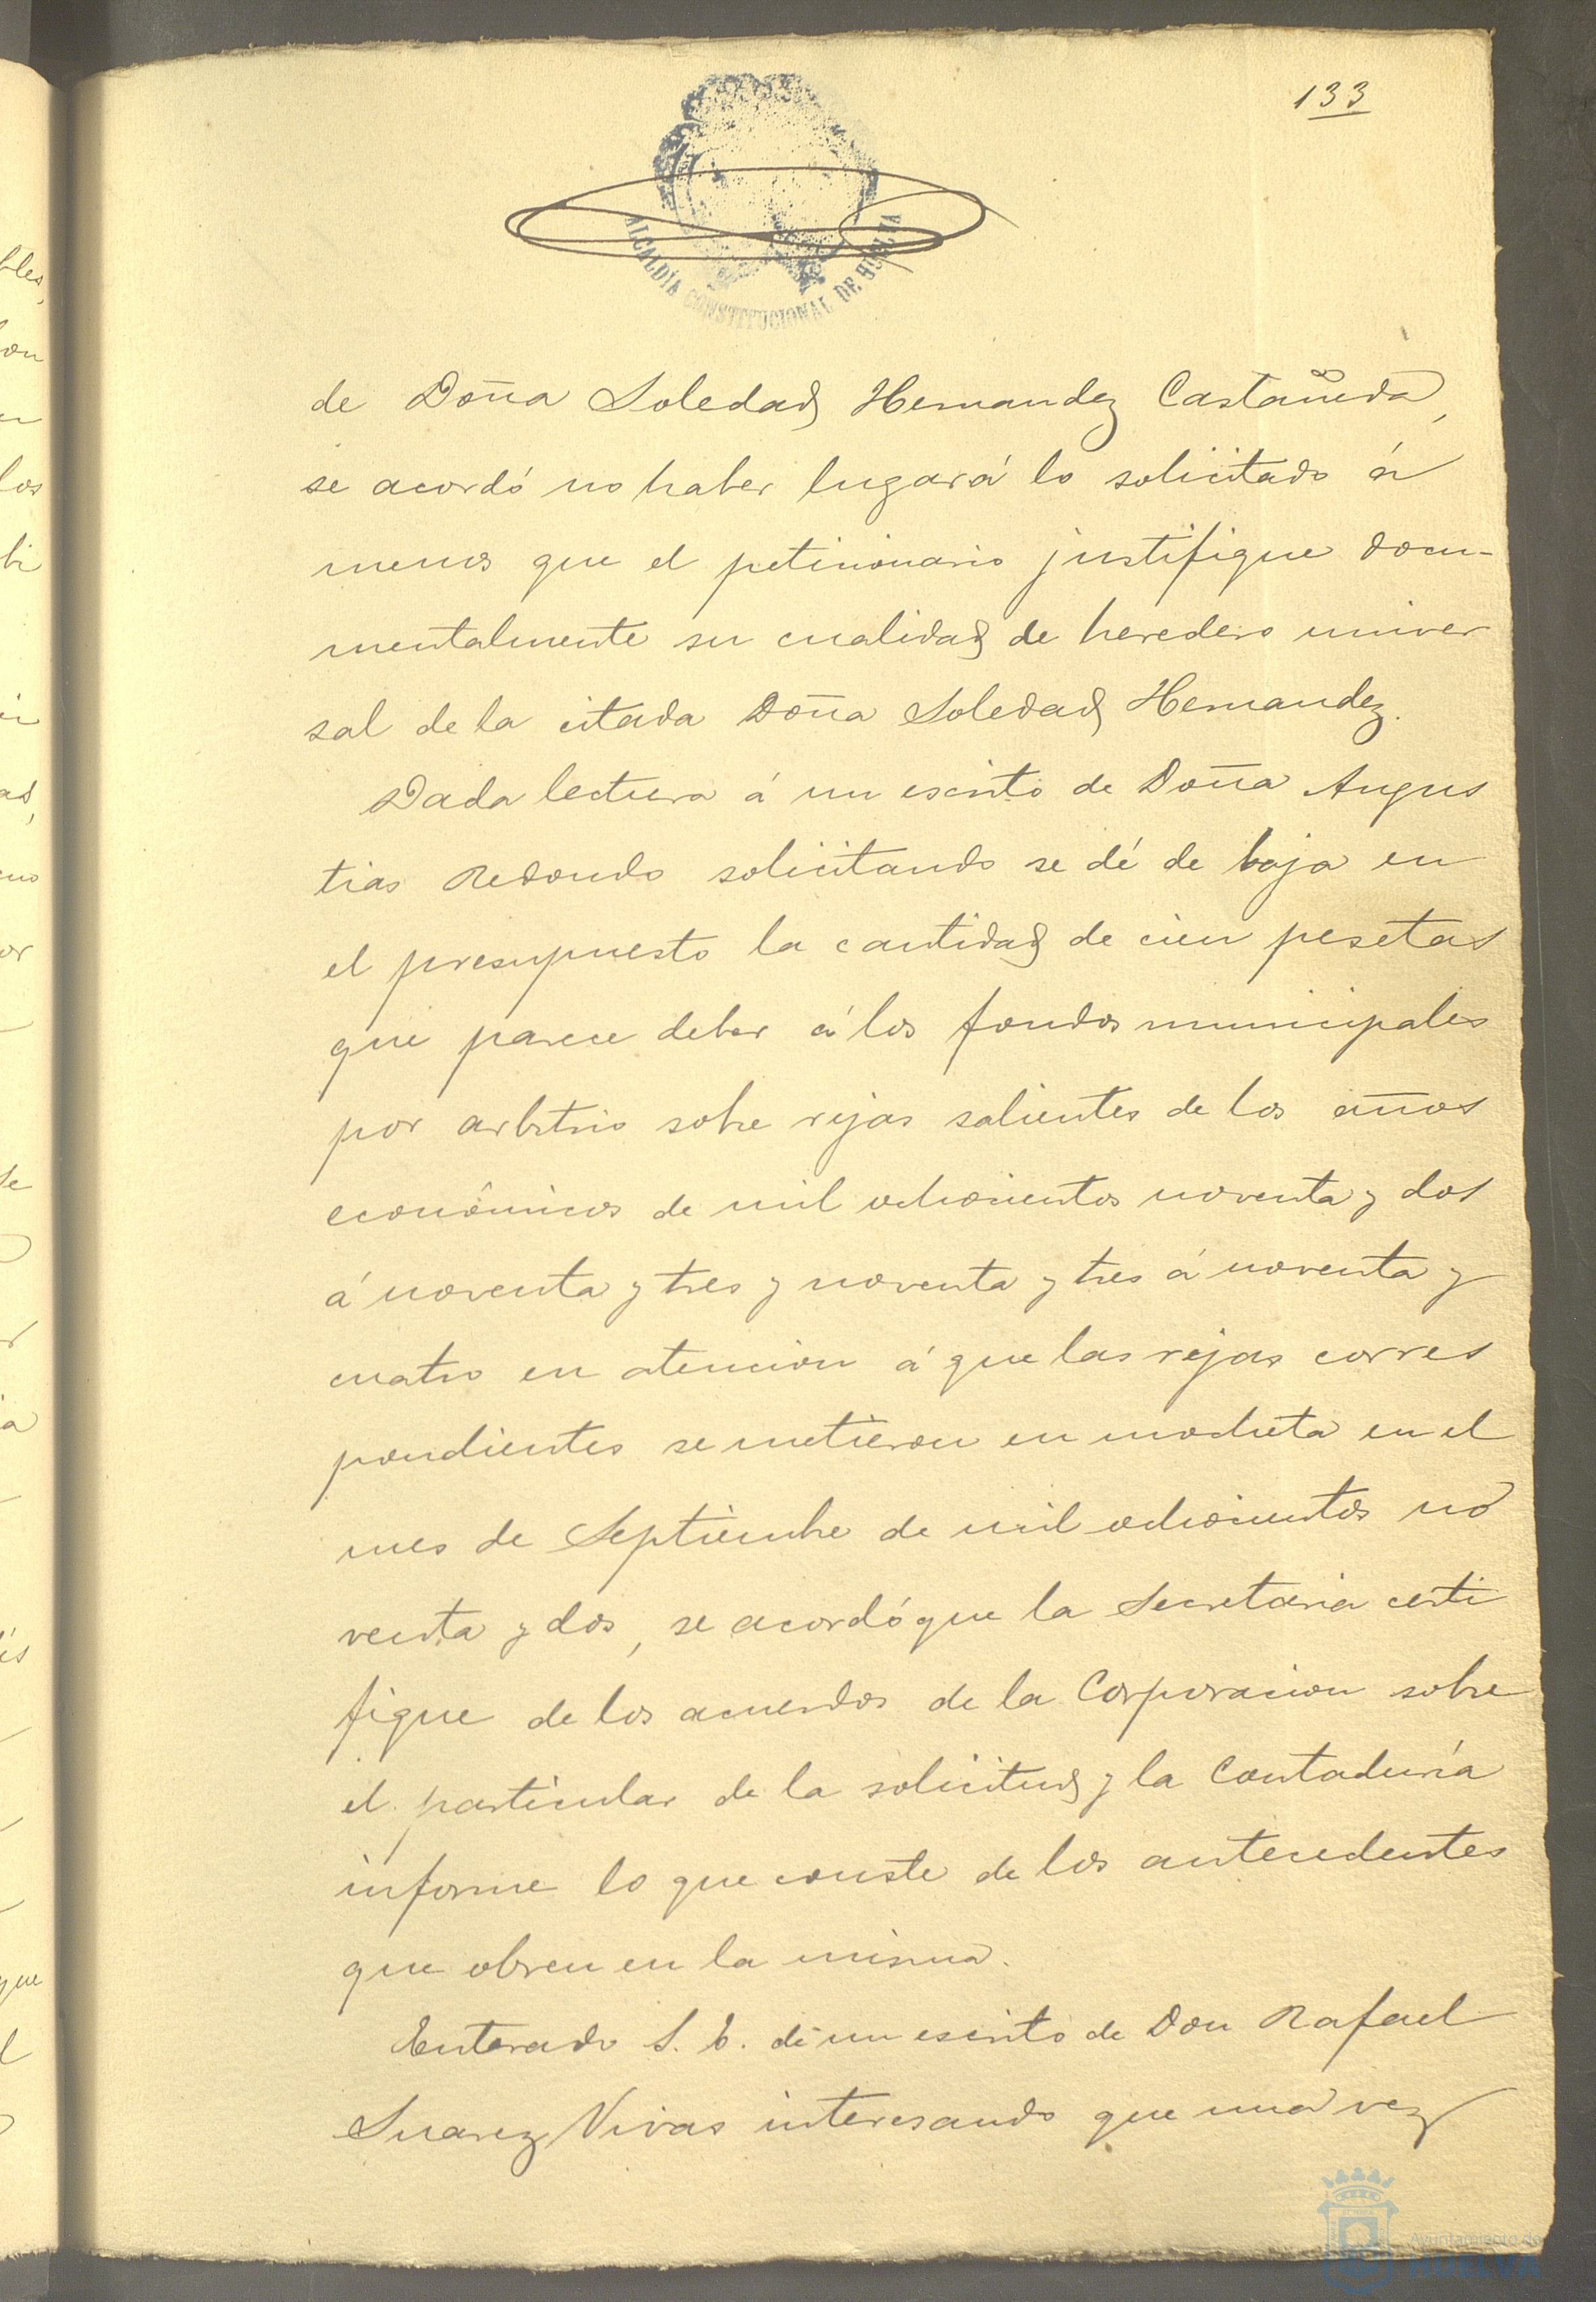 133
ALCALDÍA CONSTITUCIONAL DE HUELVA
de Doña Soledad Hernandez Castañeda,
se acordó no haber lugar á lo solicitado á
menos que el peticionario justifique docu-
mentalmente su cualidad de heredero univer
sal de la citada Doña Soledad Hernandez.
Dada lectura á un escrito de Doña Angus
tias Redondo solicitando se dé de baja en
el presupuesto la cantidad de cien pesetas
que parece deber á los fondos municipales
por arbitrio sobre rejas salientes de los años
económicos de mil ochocientos noventa y dos
á noventa y tres y noventa y tres á noventa y
cuatro en atencion á que las rejas corres
pondientes se metieron en mocheta en el
mes de Septiembre de mil ochocientos no
venta y dos, se acordó que la Secretaria certi
fique de los acuerdos de la Corporacion sobre
el particular de la solicitud y la Contaduría
informe lo que conste de los antecedentes
que obren en la misma.
Enterado S. E. de un escrito de Don Rafael
Suarez Vivas interesando que una vez
Ayuntamiento de
HUELVA